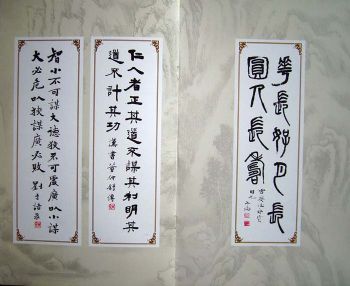 華長好月長
圓人長壽
仁人者正其道不謀其利明其
道不計其功 漢書董仲舒傳
智小不可謀大德狹不可處廣以小謀
大必危以狹謀廣必敗 劉子